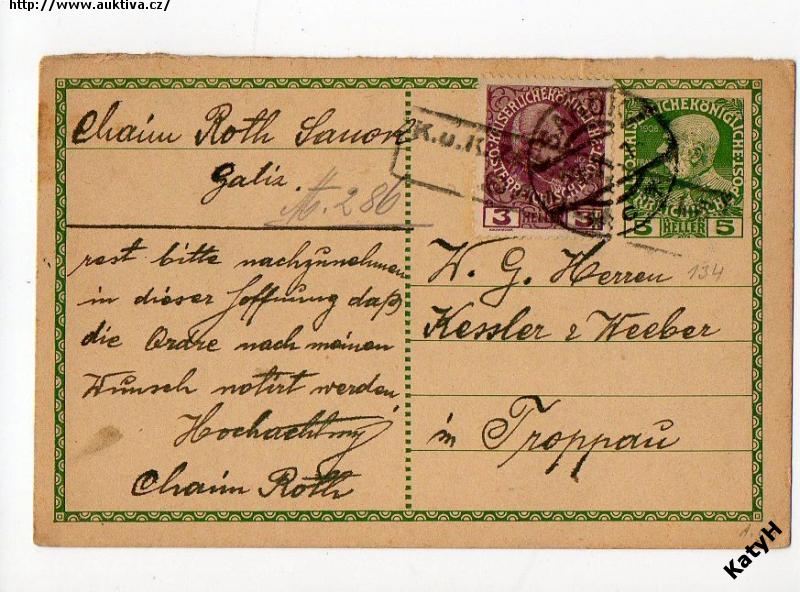 http://www.auktiva.cz/
Chaim Roth Sanok
Galiz.
286
rest bitte nachzunehmen
in dieser Hoffnung daß
die Ordre nach meinen
Wunsch notirt werden
Hochachtung
Chaim Roth
K.u.K.
3 HELLER 3
1908
5 HELLER 5
W. G. Herren
134
Kessler & Weeber
in Troppau
KatyH